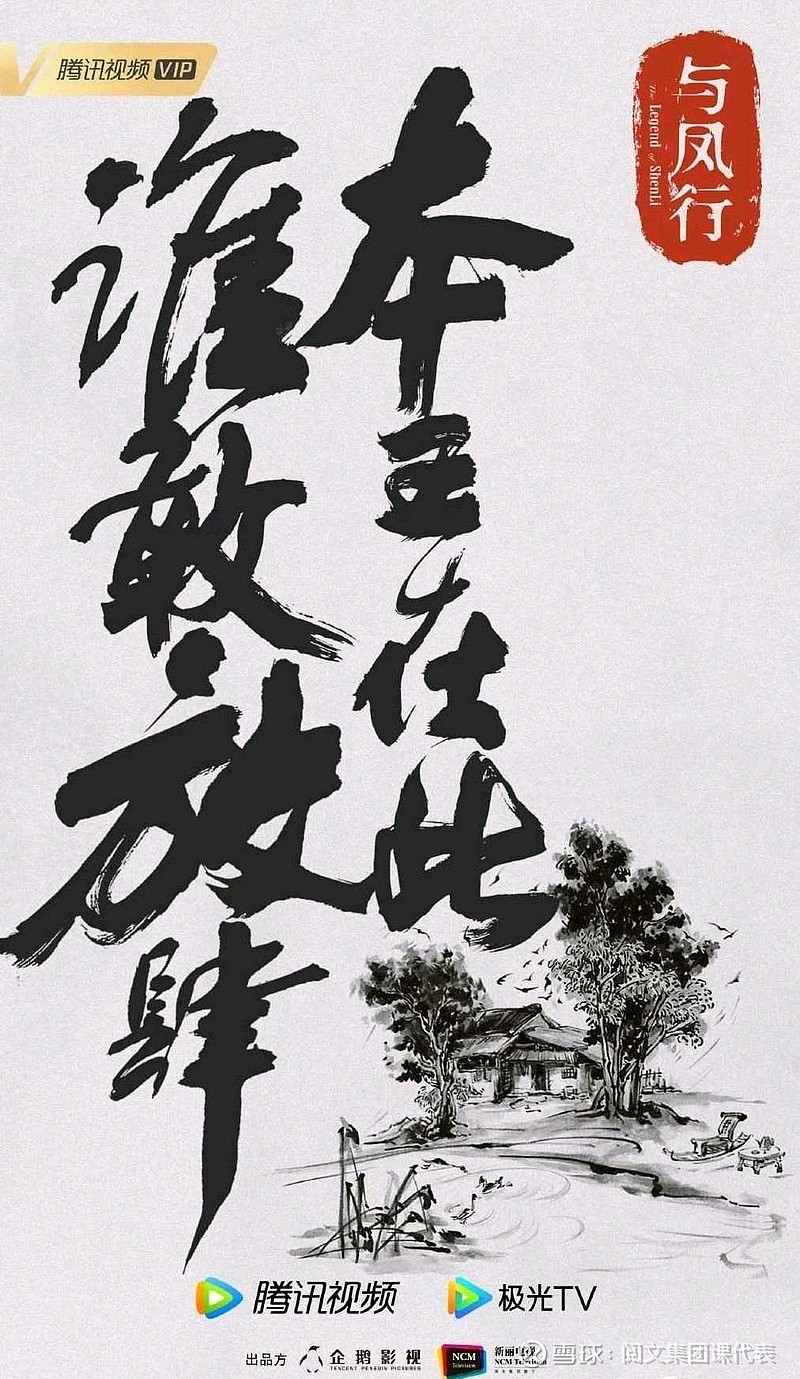 腾讯视频 VIP
与凤行
The Legend of ShenLi
本王在此
谁敢放肆
腾讯视频
极光TV
出品方
企鹅影视
TENCENT PENGUIN PICTURES
NCM
Television
新丽电视
NCM Television
雪球：阅文集团课代表